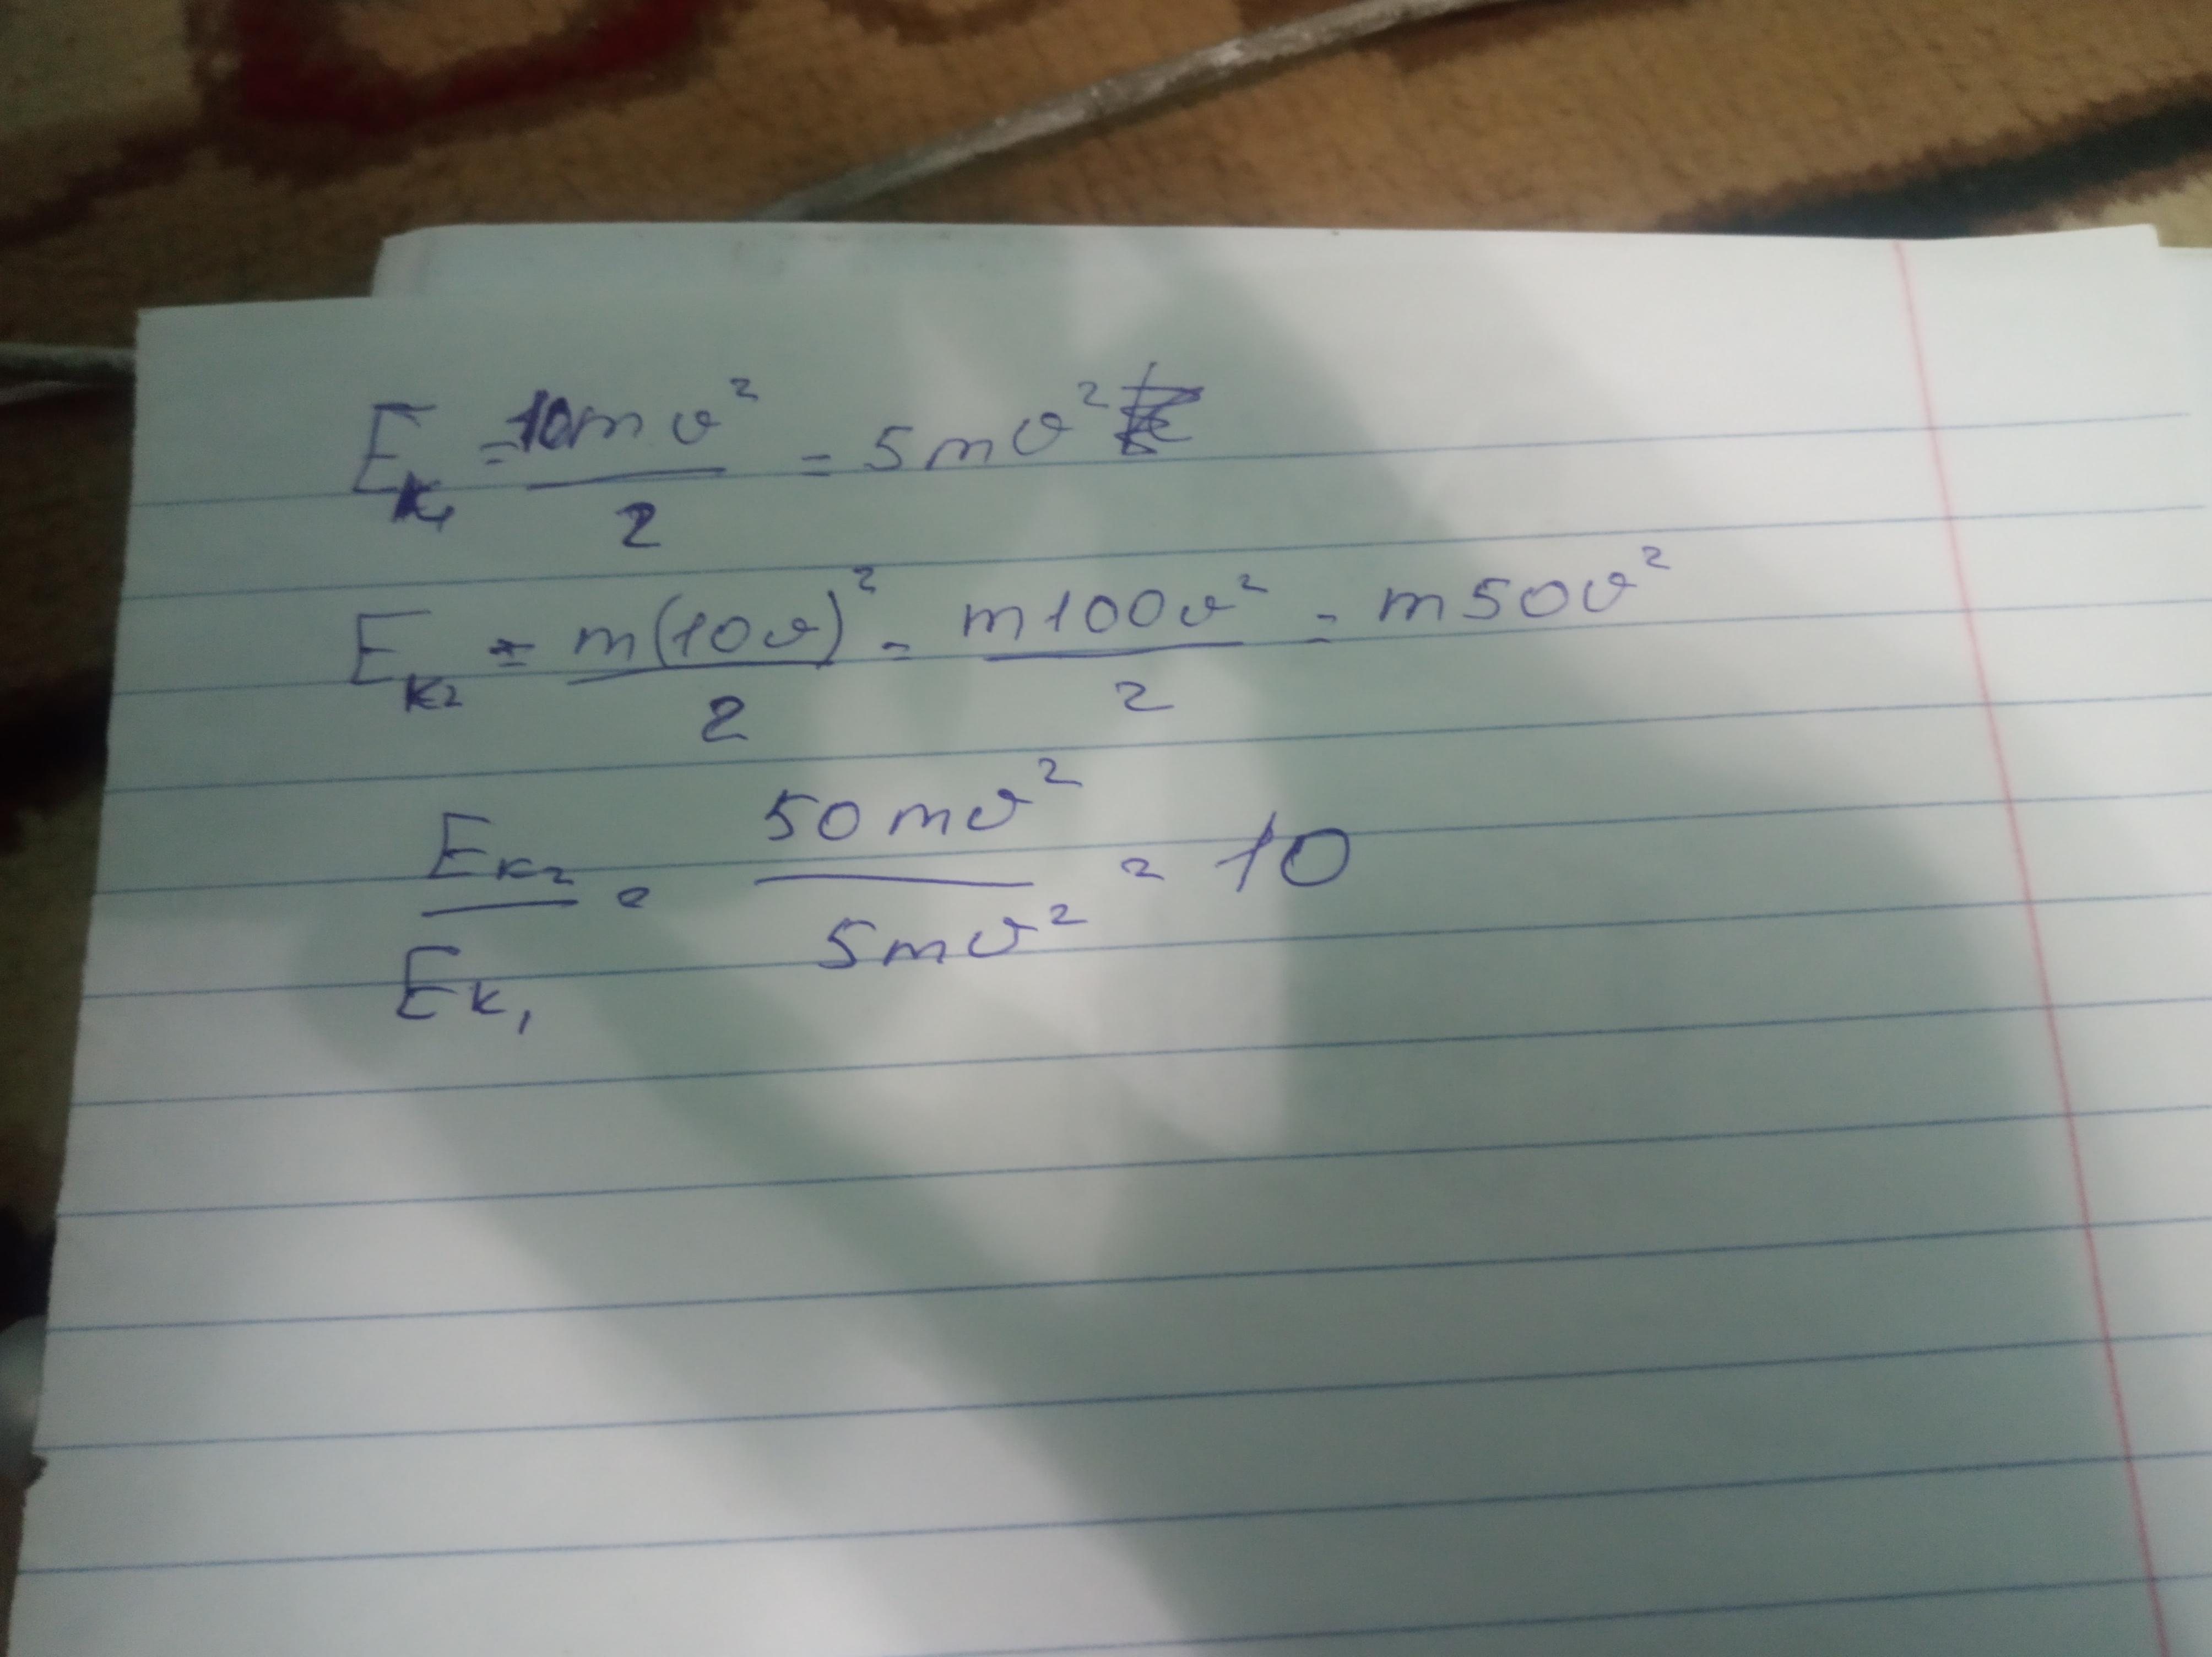 E_K1 = 10mv²/2 = 5mv²
E_K2 = m(10v)²/2 = m100v²/2 = m50v²
E_K2/E_K1 = 50mv²/5mv² = 10